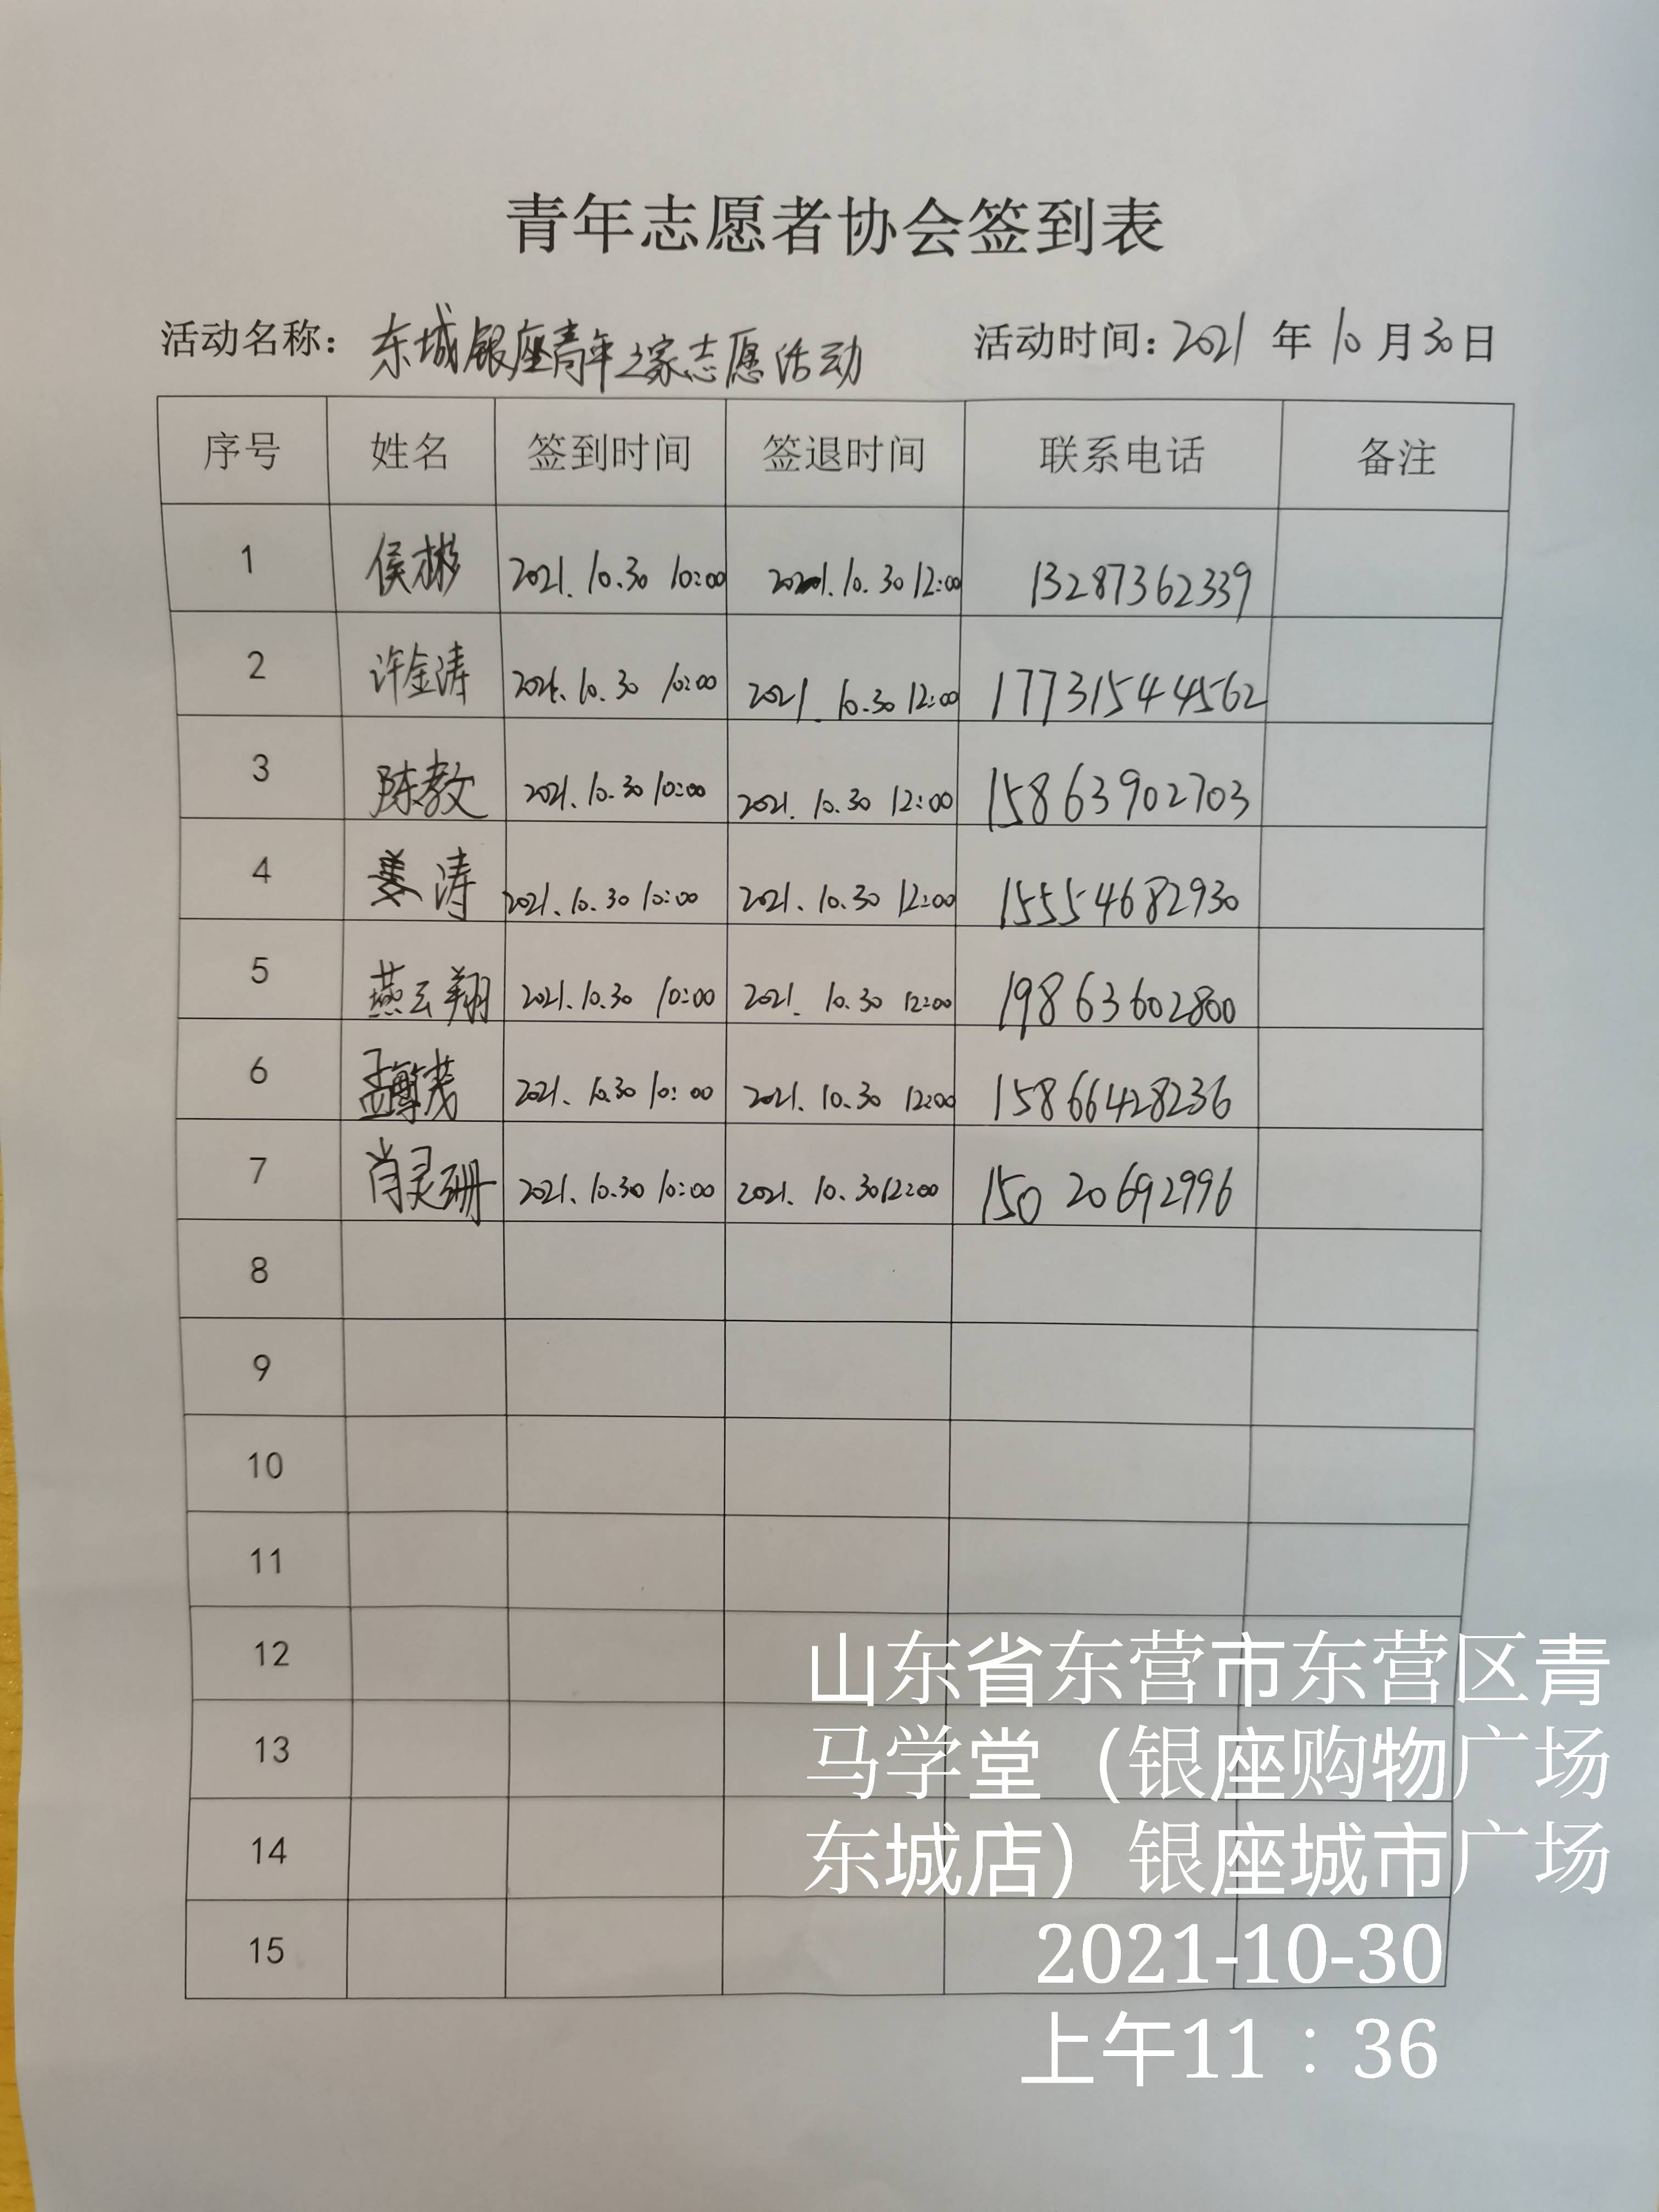 青年志愿者协会签到表
活动名称：东城银座青年之家志愿活动 活动时间：2021年10月30日
序号 姓名 签到时间 签退时间 联系电话 备注
1 侯彬 2021.10.30 10:00 2021.10.30 12:00 13287362339
2 许金涛 2021.10.30 10:00 2021.10.30 12:00 17731544562
3 陈教文 2021.10.30 10:00 2021.10.30 12:00 15863902703
4 姜涛 2021.10.30 10:00 2021.10.30 12:00 15554682930
5 燕云翔 2021.10.30 10:00 2021.10.30 12:00 19863602800
6 2021.10.30 10:00 2021.10.30 12:00 15866428236
7 肖灵珊 2021.10.30 10:00 2021.10.30 12:00 15020692996
8
9
10
11
12
13
14
15
山东省东营市东营区青
马学堂（银座购物广场
东城店）银座城市广场
2021-10-30
上午11：36